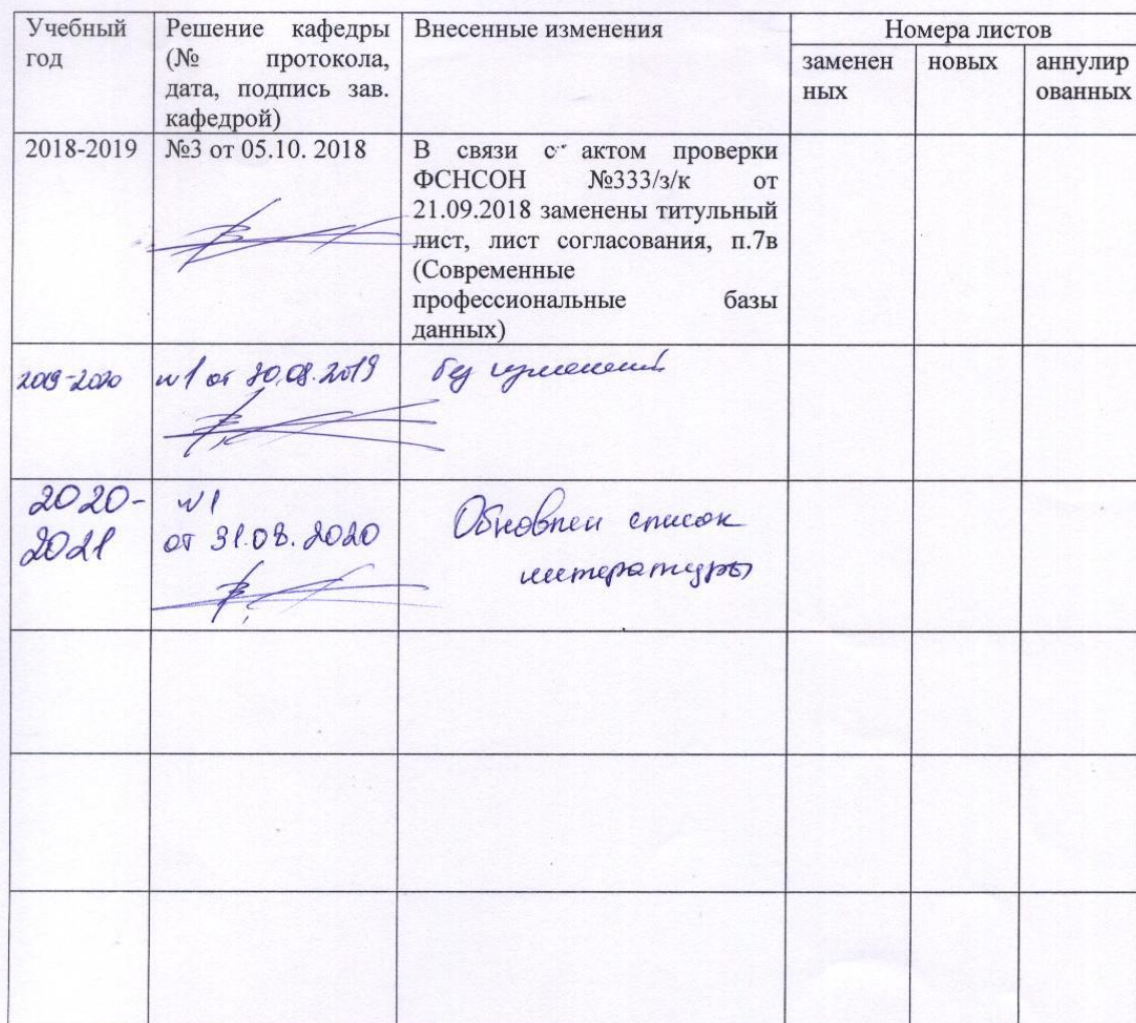 Учебный год
Решение кафедры
(№ протокола,
дата, подпись зав.
кафедрой)
Внесенные изменения
Номера листов
заменен
ных
новых
аннулир
ованных
2018-2019
№3 от 05.10. 2018
В связи с актом проверки
ФСНСОН №333/з/к от
21.09.2018 заменены титульный
лист, лист согласования, п.7в
(Современные
профессиональные базы
данных)
2019-2020
№1 от 30.08.2019
без изменений
2020-
2021
№1
от 31.08.2020
Обновлен список
литературы